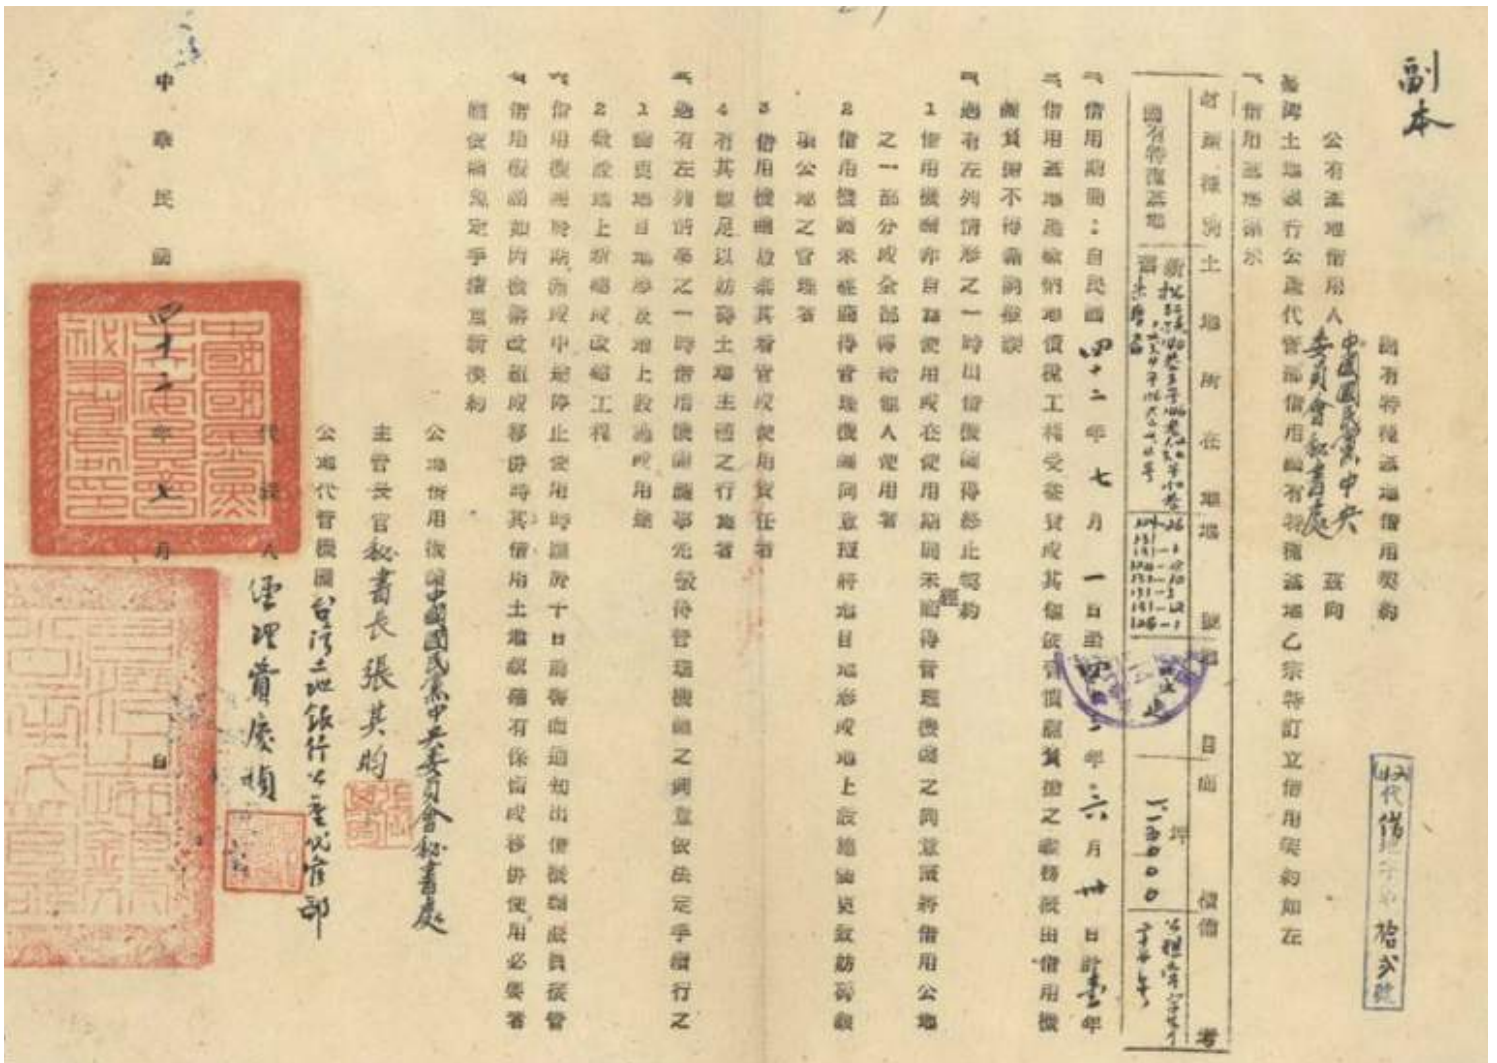 副本
國有特種基地借用契約
代借地字第拾弍號
公有基地借用人中國國民黨中央委員會秘書處 茲向
臺灣土地銀行公產代管部借用國有特種基地乙宗特訂立借用契約如左
一、借用基地標示
財產種別 土地所在 地號 地目 面積 備考
國有特種基地
坪
二、借用期間：自民國四十二年七月一日至四十三年六月卅日計壹年
三、借用基地應繳納地價稅工程受益費或其他依管慣應負擔之義務概由借用機
關負擔不得藉詞推諉
四、遇有左列情形之一時出借機關得終止契約
1 借用機關非自為使用或在使用期間未經商得管理機關之同意而將借用公地
之一部分或全部轉給他人使用者
2 借用機關未經商得管理機關同意擅將地目地形或地上設施變更致妨礙該
項公地之管理者
3 借用機關放棄其看管或使用責任者
4 有其他足以妨礙土地主權之行為者
五、遇有左列情事之一時借用機關應事先徵得管理機關之同意依法定手續行之
1 變更地目地形及地上設施或用途
2 敬設地上新建或改建工程
六、借用機關於期滿或中途停止使用時應於十日前書面通知出借機關派員接管
七、借用機關如因機構改組或移併時其借用土地報繼有保留或移併使用必要者
應依照規定手續重新換約
公地借用機關中國國民黨中央委員會秘書處
主管長官秘書長張其昀
公地代管機關台灣土地銀行公產代管部
代表人經理賞慶楨
中華民國四十二年七月 日